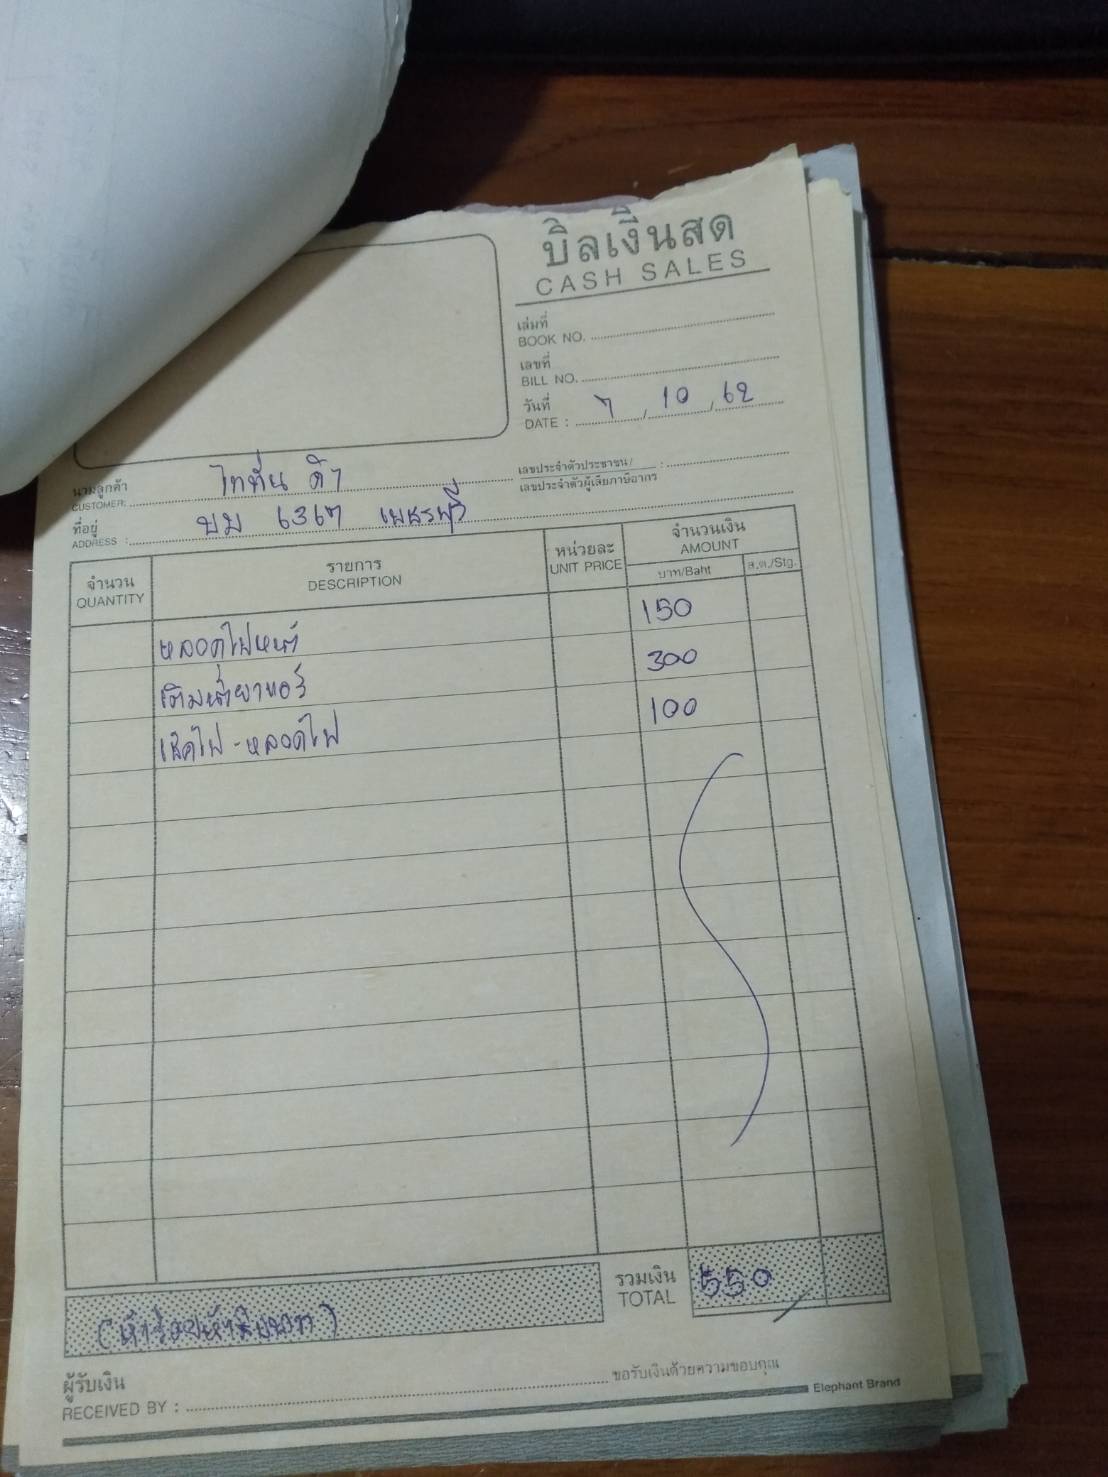 บิลเงินสด
CASH SALES
เล่มที่
BOOK NO.
เลขที่
BILL NO.
วันที่
DATE : 7 / 10 / 62
นามลูกค้า
CUSTOMER: ไททั่น ดำ
เลขประจำตัวประชาชน/ :
เลขประจำตัวผู้เสียภาษีอากร
ที่อยู่
ADDRESS : บม 6367 เพชรบุรี
จำนวน
QUANTITY
รายการ
DESCRIPTION
หน่วยละ
UNIT PRICE
จำนวนเงิน
AMOUNT
บาท/Baht ส.ต./Stg.
หลอดไฟหน้า 150
เติมน้ำยาแอร์ 300
เช็คไฟ - หลอดไฟ 100
รวมเงิน
TOTAL 550
(ห้าร้อยห้าสิบบาท)
ผู้รับเงิน
RECEIVED BY : ขอรับเงินด้วยความขอบคุณ
Elephant Brand